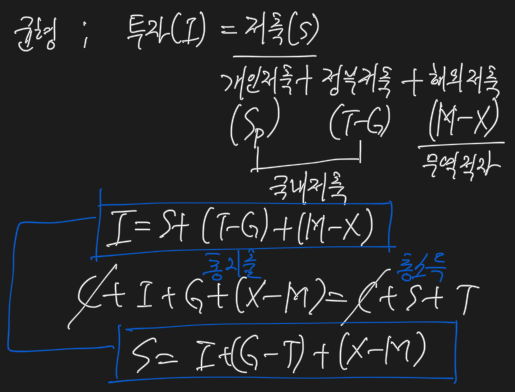 균형 ; 투자(I) = 저축(S)
개인저축 + 정부저축 + 해외저축
(Sp) (T-G) (M-X)
국내저축 무역적자
I = S + (T-G) + (M-X)
총지출 총소득
C + I + G + (X-M) = C + S + T
S = I + (G-T) + (X-M)